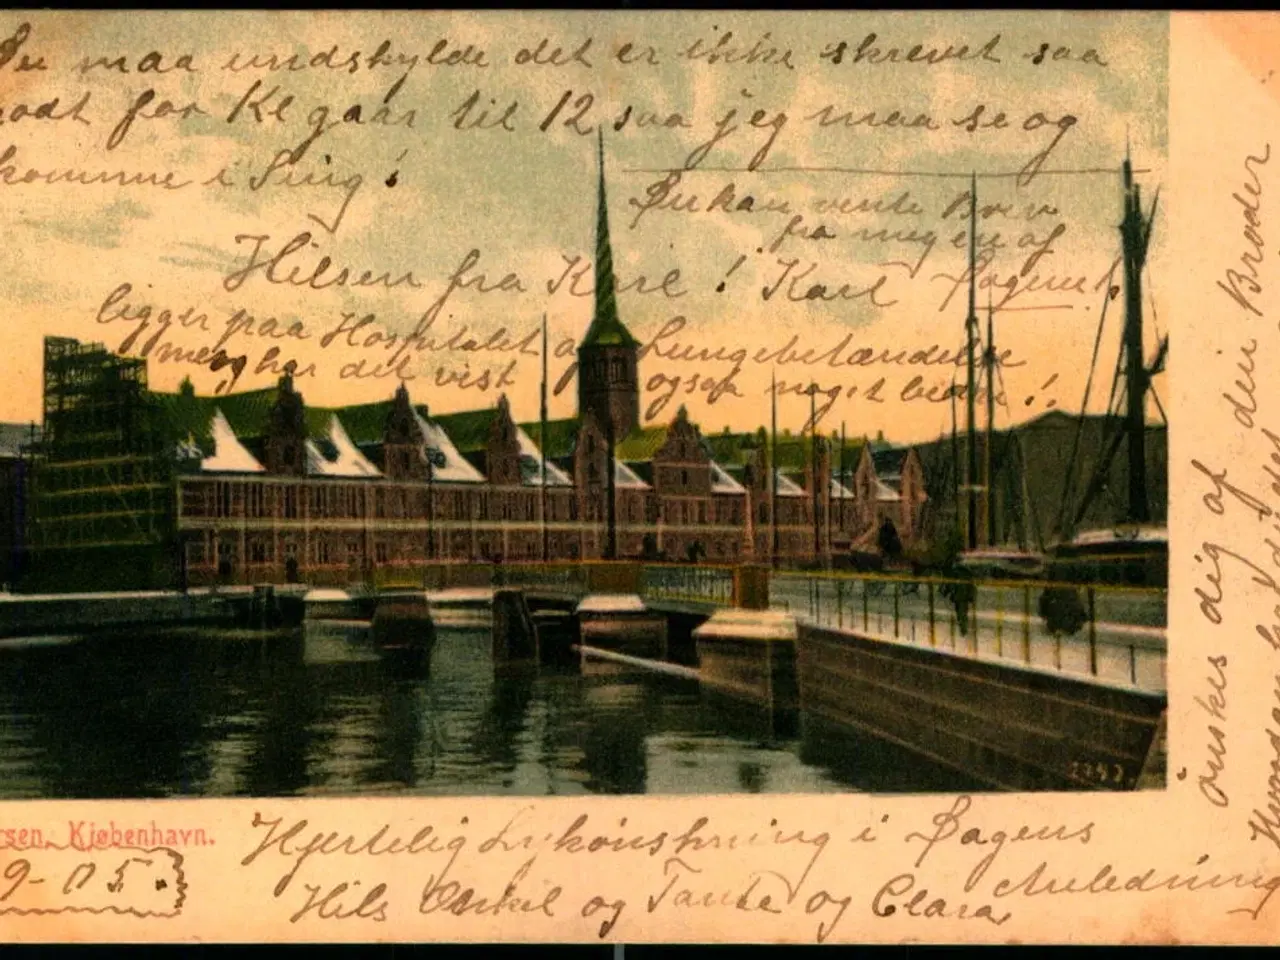 Du maa undskylde det er ikke skrevet saa
godt for Kl gaar til 12 saa jeg maa se og
komme i Sing!
Du kan vente Brev
fra meg en af
Dagene
Hilsen fra Karl! Karl
ligger paa Hospitalet og Lungebetændelse
men har det vist ogsaa noget bedre!.
ønskes dig af din Broder
Børsen, Kjøbenhavn.
9-05.
2343.
Hjertelig Lukønskning i Dagens
Anledning
Hils Onkel og Tante og Clara